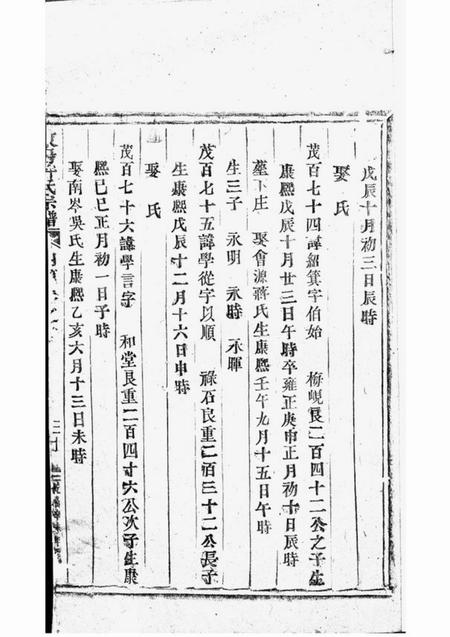 戊辰十月初三日辰時
娶 氏
茂百七十四諱紹箕字伯始 梅峴良二百四十二公之子生
康熙戊辰十月廿三日午時卒雍正庚申正月初十日辰時
塟下庄 娶會源蔣氏生康熙壬午九月十五日午時
生三子 永明 永時 永暉
茂百七十五諱學從字以順 祿石良重二百三十二公長子
生康熙戊辰十二月十六日申時
娶 氏
茂百七十六諱學言字 和堂良重二百四十六公次子生康
熙己巳正月初一日子時
娶南岑吳氏生康熙乙亥六月十三日未時
氏宗譜